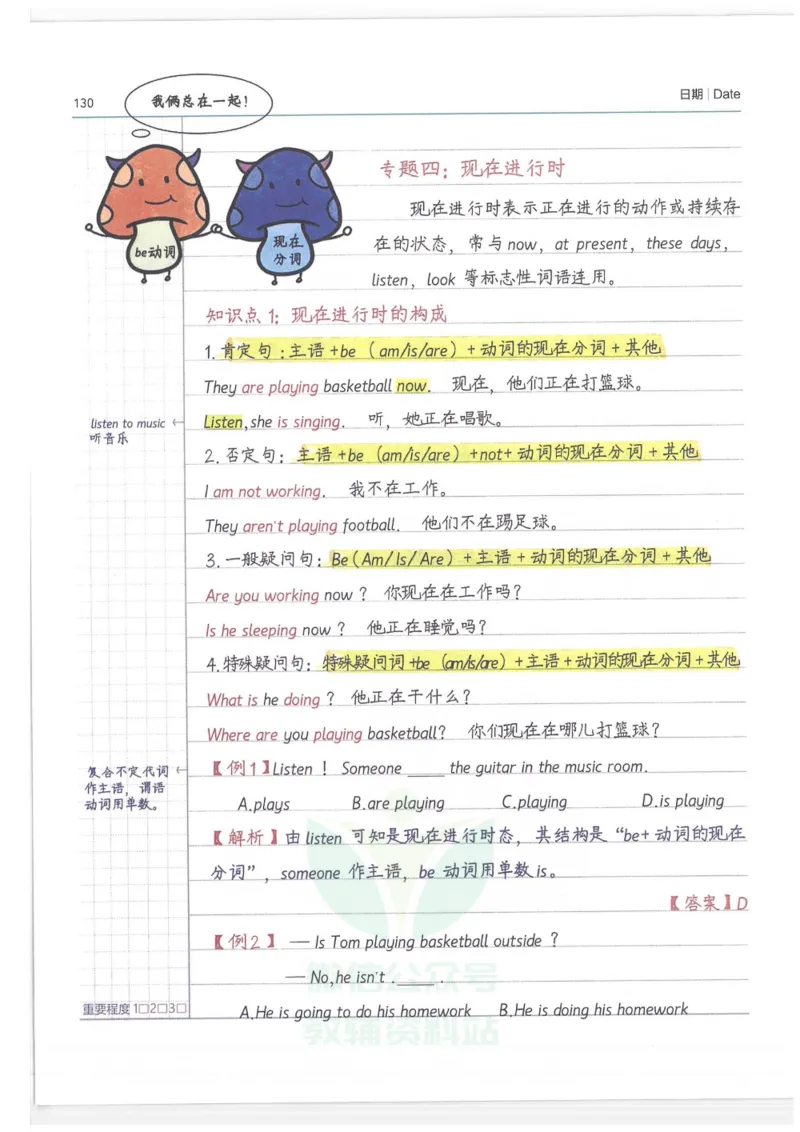 130
我俩总在一起！
日期 | Date
be动词
现在
分词
专题四：现在进行时
现在进行时表示正在进行的动作或持续存
在的状态，常与 now，at present，these days，
listen，look 等标志性词语连用。
知识点 1：现在进行时的构成
1.肯定句：主语+be（am/is/are）+动词的现在分词+其他
They are playing basketball now. 现在，他们正在打篮球。
listen to music
听音乐
Listen,she is singing. 听，她正在唱歌。
2.否定句：主语+be（am/is/are）+not+动词的现在分词+其他
I am not working. 我不在工作。
They aren't playing football. 他们不在踢足球。
3.一般疑问句：Be(Am/Is/Are)+主语+动词的现在分词+其他
Are you working now？ 你现在在工作吗？
Is he sleeping now？ 他正在睡觉吗？
4.特殊疑问句：特殊疑问词+be（am/is/are）+主语+动词的现在分词+其他
What is he doing？ 他正在干什么？
Where are you playing basketball？ 你们现在在哪儿打篮球？
复合不定代词
作主语，谓语
动词用单数。
【例1】Listen！ Someone ____ the guitar in the music room.
A.plays B.are playing C.playing D.is playing
【解析】由 listen 可知是现在进行时态，其结构是“be+动词的现在
分词”，someone 作主语，be 动词用单数is。
【答案】D
【例2】 — Is Tom playing basketball outside？
— No,he isn't .____ .
微信公众号
A.He is going to do his homework B.He is doing his homework
教辅资料站
重要程度 1□2□3□